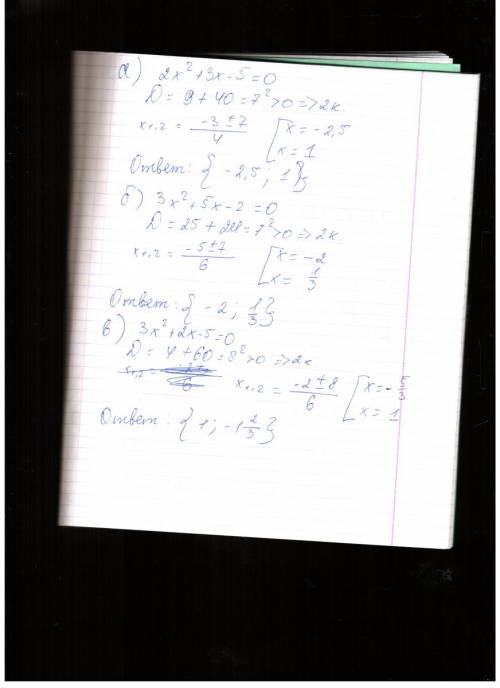 а) 2x²+3x-5=0
D= 9+40=7²>0=>2к.
x₁,₂ = (-3±7)/4 [x=-2,5 x=1
Ответ: {-2,5; 1}
б) 3x²+5x-2=0
D=25+24=7²>0=>2к.
x₁,₂ = (-5±7)/6 [x=-2 x=1/3
Ответ: {-2; 1/3}
в) 3x²+2x-5=0
D= 4+60=8²>0=>2к
x₁,₂ = x₁,₂ = (-2±8)/6 [x=-5/3 x=1
Ответ: {1; -1 2/3}